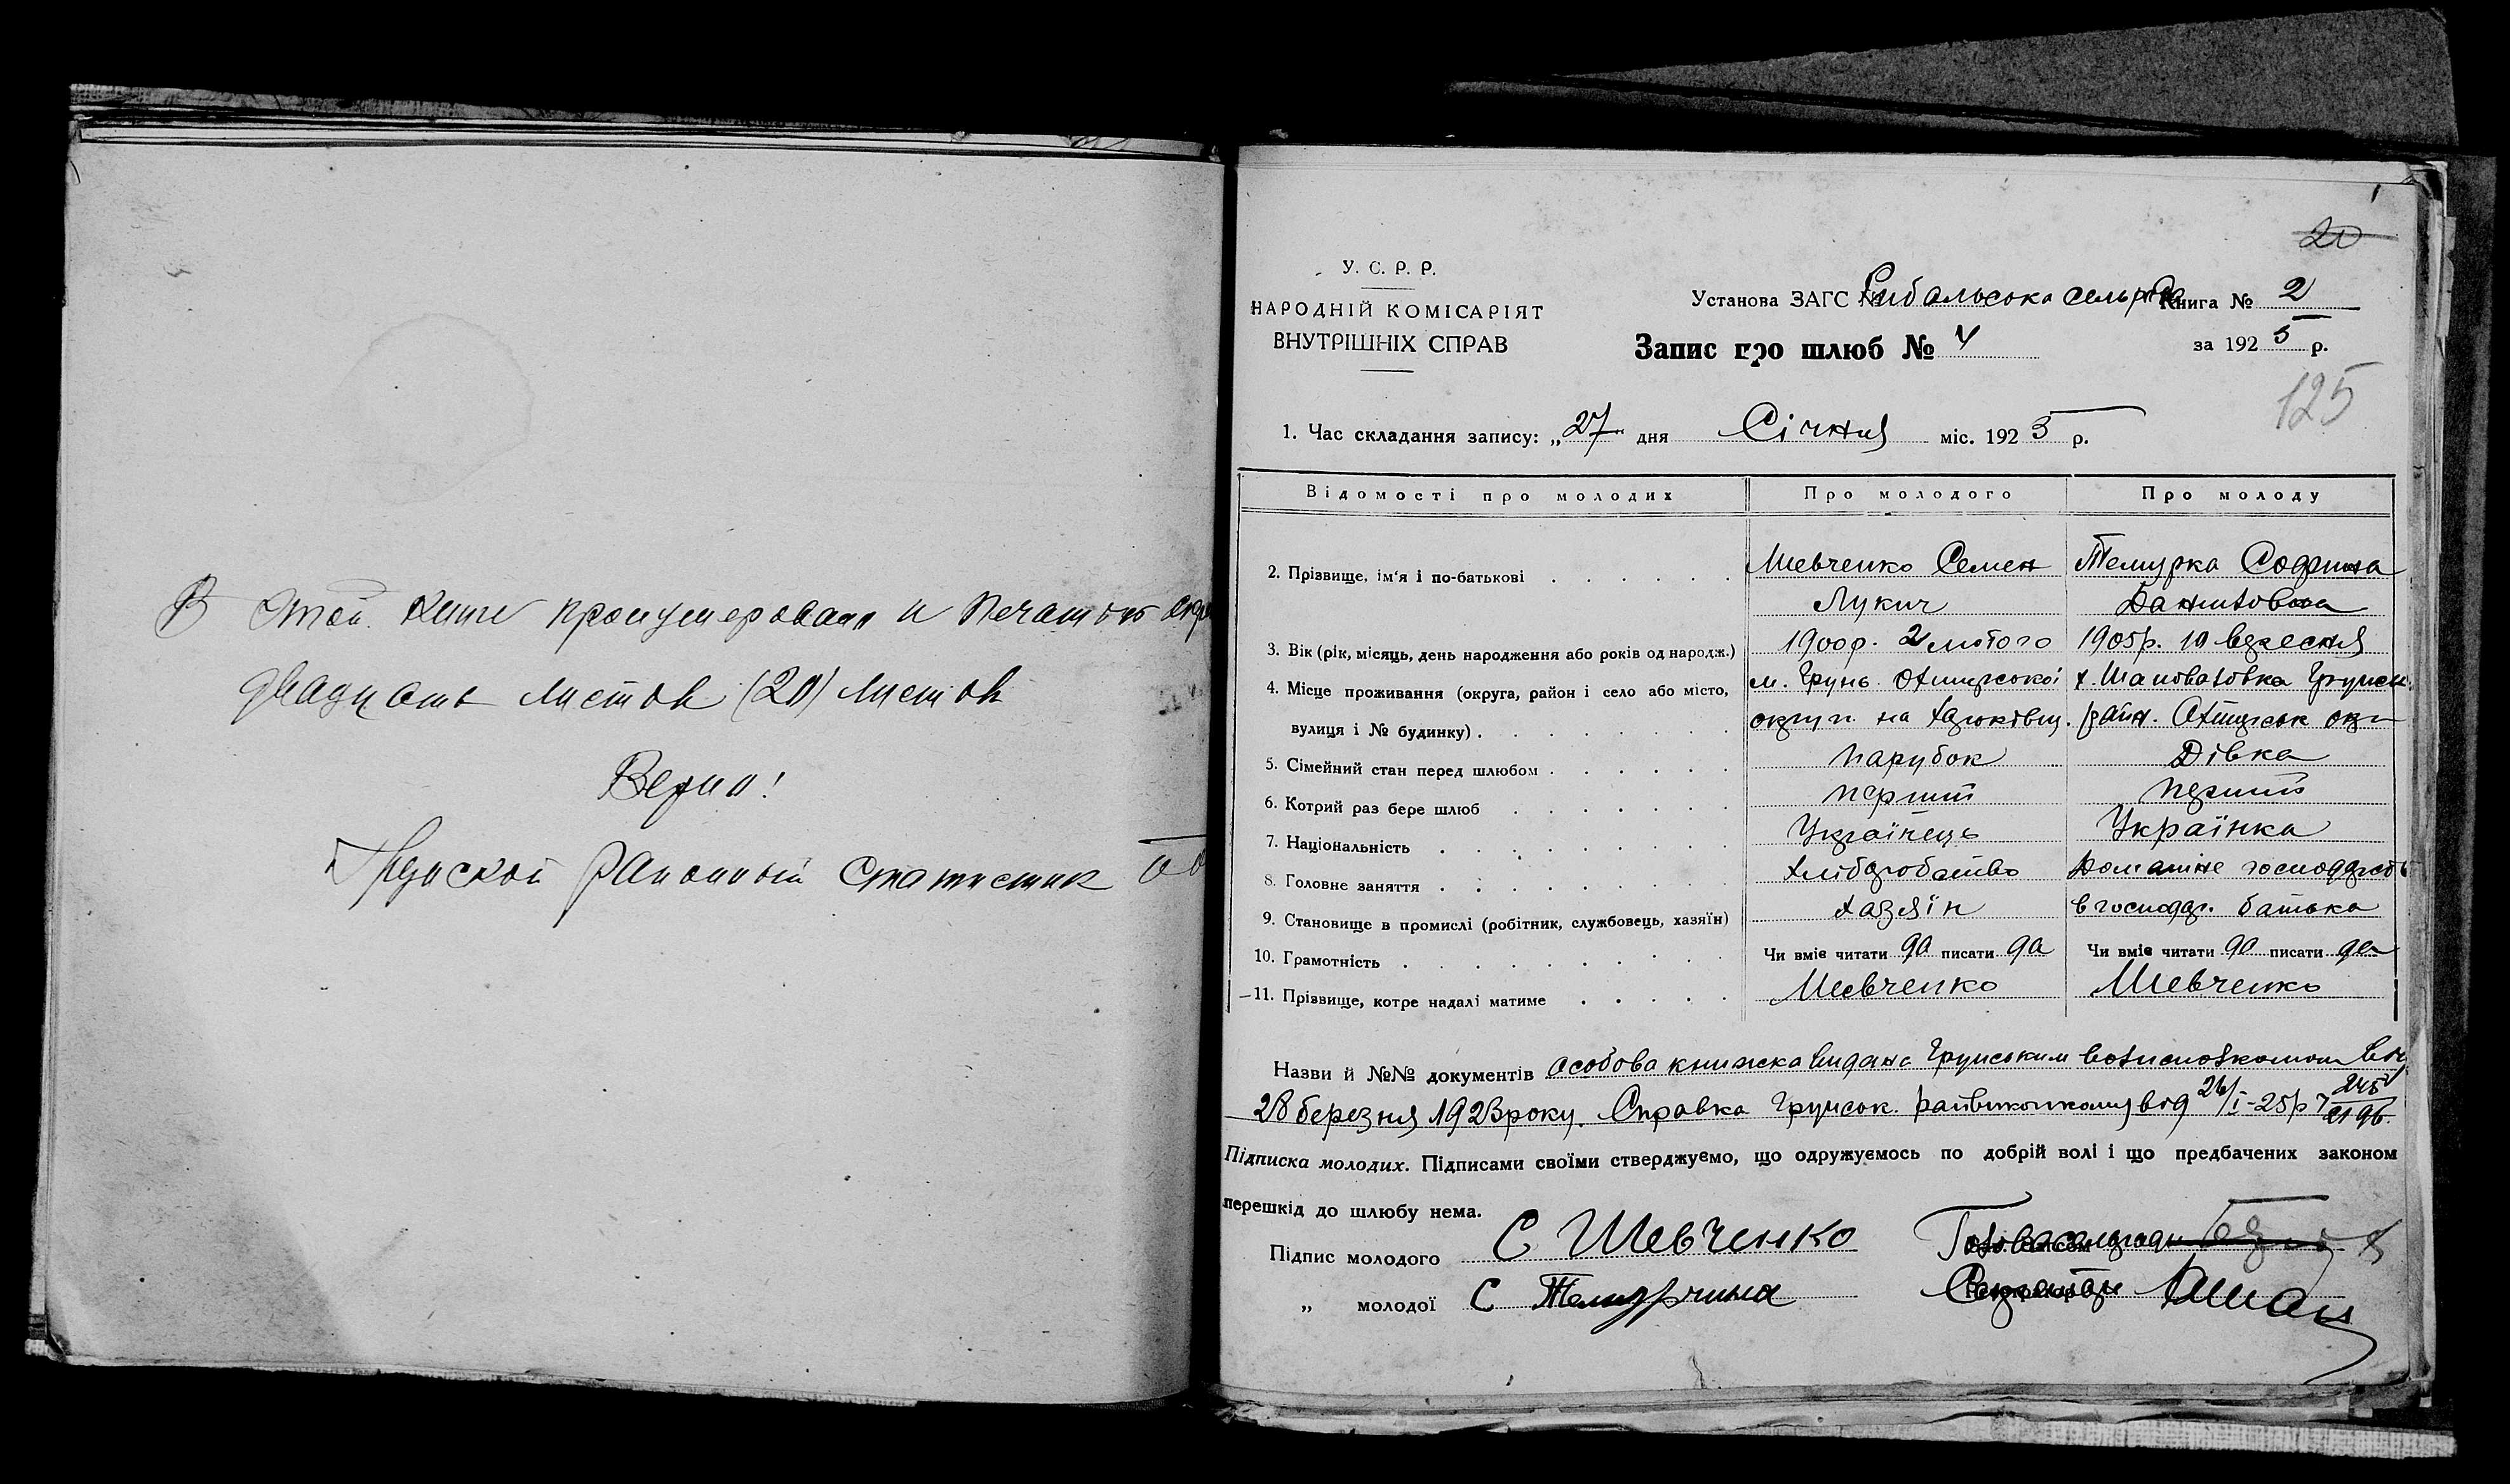 В этой книге пронумеровано и печатью скр
двадцать листов (20) листов
Верно!
Грунской районный статистик
20
У. С. Р. Р.
НАРОДНІЙ КОМІСАРІЯТ
ВНУТРІШНІХ СПРАВ
Установа ЗАГС № Рибальська сельрада Книга № 2
Запис про шлюб № 4 за 1925 р.
125
1. Час складання запису: „27" дня Січня міс. 1925 р.
Відомості про молодих Про молодого Про молоду
2. Прізвище, ім'я і по-батькові Шевченко Семен Темурка Софина
Лукич Даниловна
3. Вік (рік, місяць, день народження або років од народж.) 1900р. 2 лютого 1905р. 10 вересня
4. Місце проживання (округа, район і село або місто, м. Грунь Охтирської х. Шаповаловка Грунськ.
вулиця і № будинку) округи на райн. Охтирськ окр
5. Сімейний стан перед шлюбом парубок Дівка
6. Котрий раз бере шлюб перший перший
7. Національність Українець Українка
8. Головне заняття хліборобство Домашнє господарств
9. Становище в промислі (робітник, службовець, хазяїн) хазяїн в господар. батька
10. Грамотність Чи вміє читати да писати да Чи вміє читати да писати да
11. Прізвище, котре надалі матиме Шевченко Шевченко
Назви й №№ документів особова книжка видана Грунським волисполкомом від
28 березня 1923 року. Справка Грунськ. райвиконкому від 26/I-25р 245/2196.
Підписка молодих. Підписами своїми стверджуємо, що одружуємось по добрій волі і що предбачених законом
перешкід до шлюбу нема.
Підпис молодого С Шевченко Голова сельради
„ молодої С Темурчина Секретарь